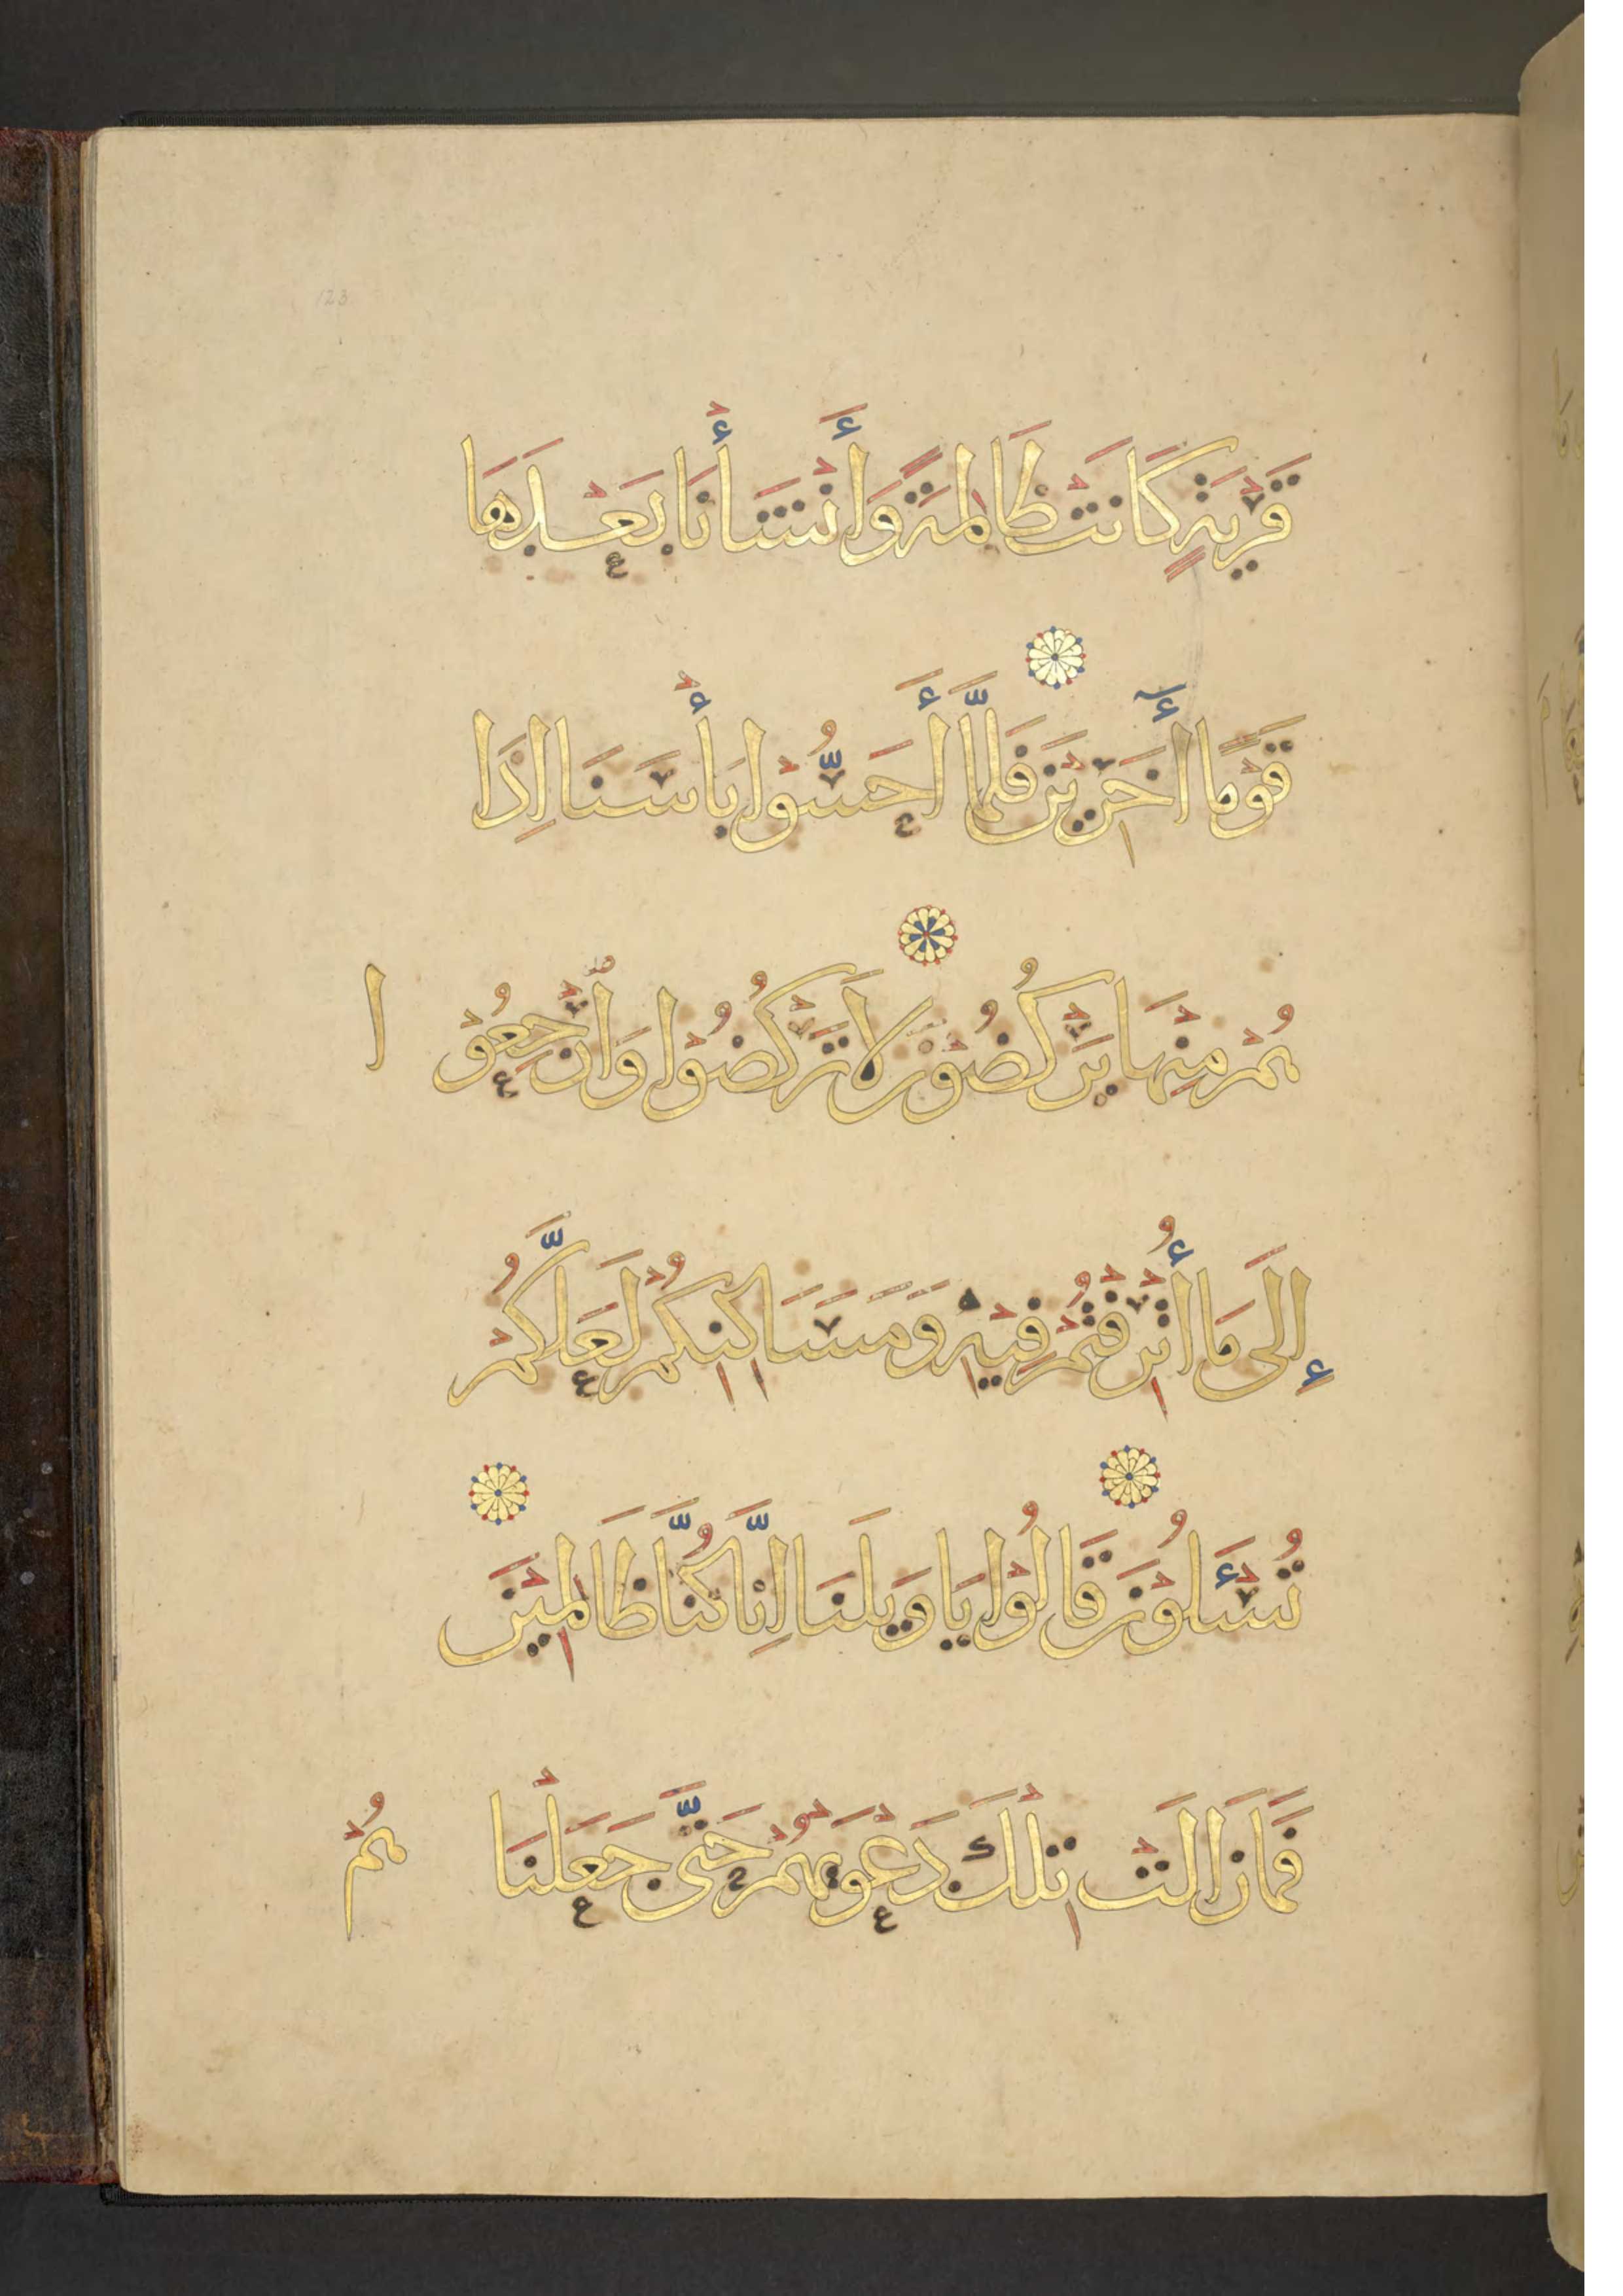 123
قَرْيَةٍ كَانَتْ ظَالِمَةً وَأَنْشَأْنَا بَعْدَهَا
قَوْمًا آخَرِيْنَ فَلَمَّا أَحَسُّوْا بَأْسَنَا اِذَا
هُمْ مِنْهَا يَرْكُضُوْنَ لَا تَرْكُضُوْا وَارْجِعُوْا
إِلَى مَا أُتْرِفْتُمْ فِيْهِ وَمَسَاكِنِكُمْ لَعَلَّكُمْ
تُسْئَلُوْنَ قَالُوْا يَا وَيْلَنَا اِنَّا كُنَّا ظَالِمِيْنَ
فَمَا زَالَتْ تِلْكَ دَعْوَىهُمْ حَتَّى جَعَلْنَا هُمْ